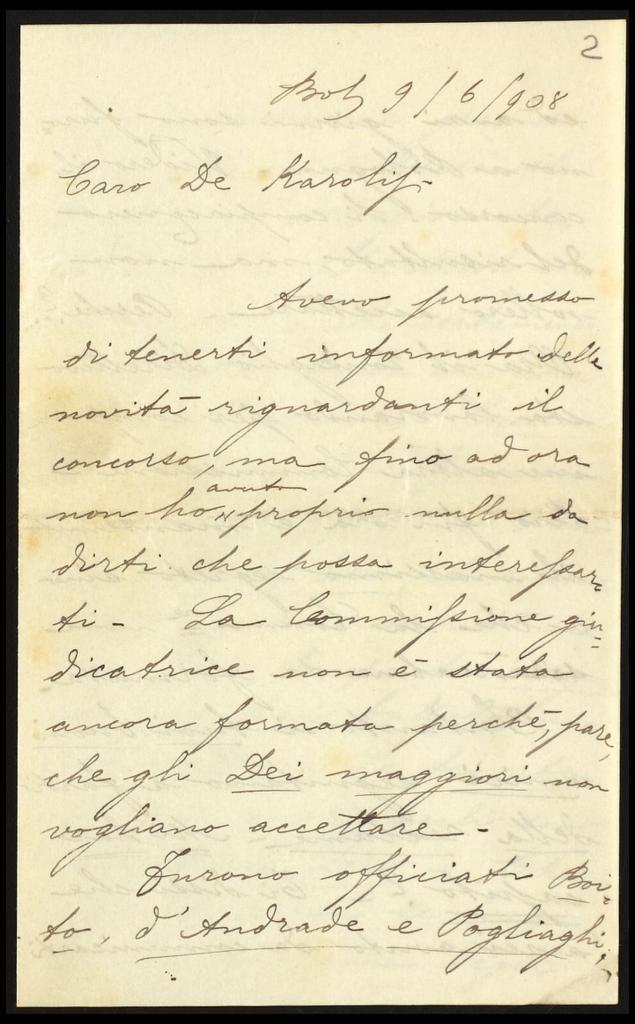 2
Bol 9/6/908
Caro De Karolis
Avevo promesso
di tenerti informato delle
novità riguardanti il
concorso, ma fino ad ora
avuto
non ho proprio nulla da
dirti che possa interessar=
ti - La Commissione giu=
dicatrice non è stata
ancora formata perchè, pare,
che gli Dei maggiori non
vogliano accettare -
Furono officiati Boi=
to, d'Andrade e Pogliaghi,